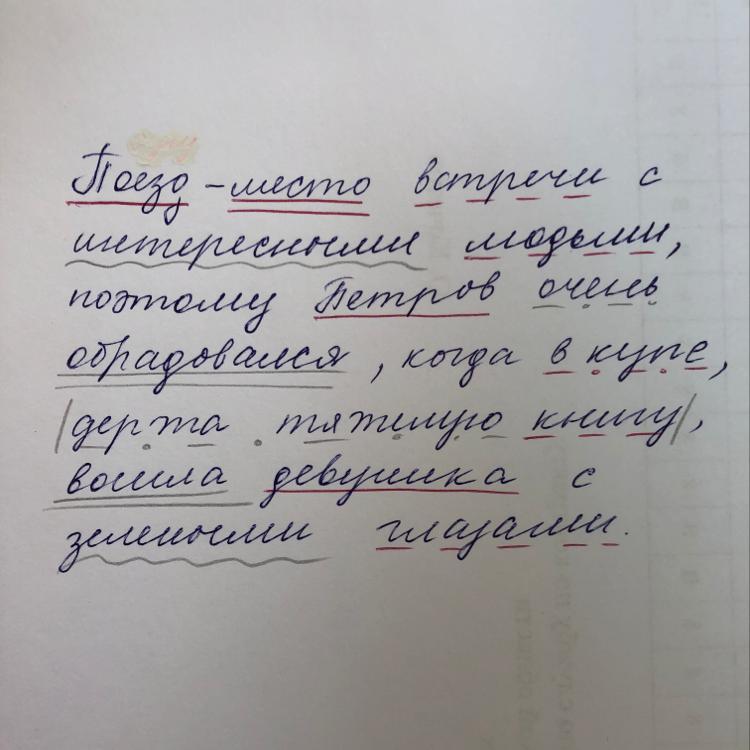 Поезд – место встречи с
интересными людьми,
поэтому Петров очень
обрадовался, когда в купе,
|держа тяжелую книгу|,
вошла девушка с
зелеными глазами.